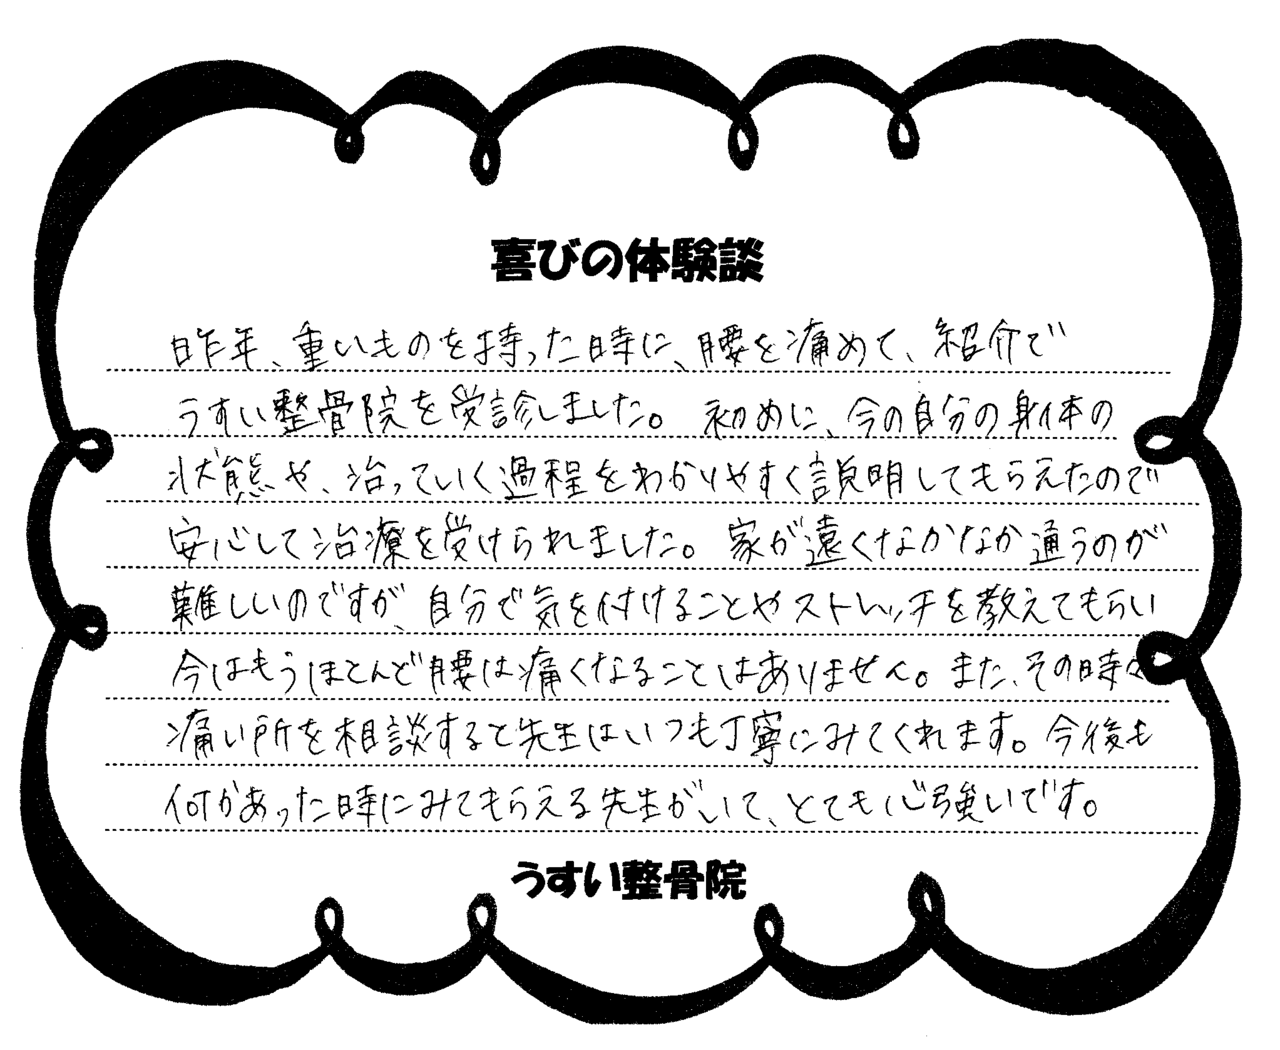 喜びの体験談
昨年、重いものを持った時に、腰を痛めて、紹介で
うすい整骨院を受診しました。初めに、今の自分の身体の
状態や、治っていく過程をわかりやすく説明してもらえたので
安心して治療を受けられました。家が遠くなかなか通うのが
難しいのですが、自分で気を付けることやストレッチを教えてもらい
今はもうほとんど腰は痛くなることはありません。また、その時々
痛い所を相談すると先生はいつも丁寧にみてくれます。今後も
何かあった時にみてもらえる先生がいて、とても心強いです。
うすい整骨院